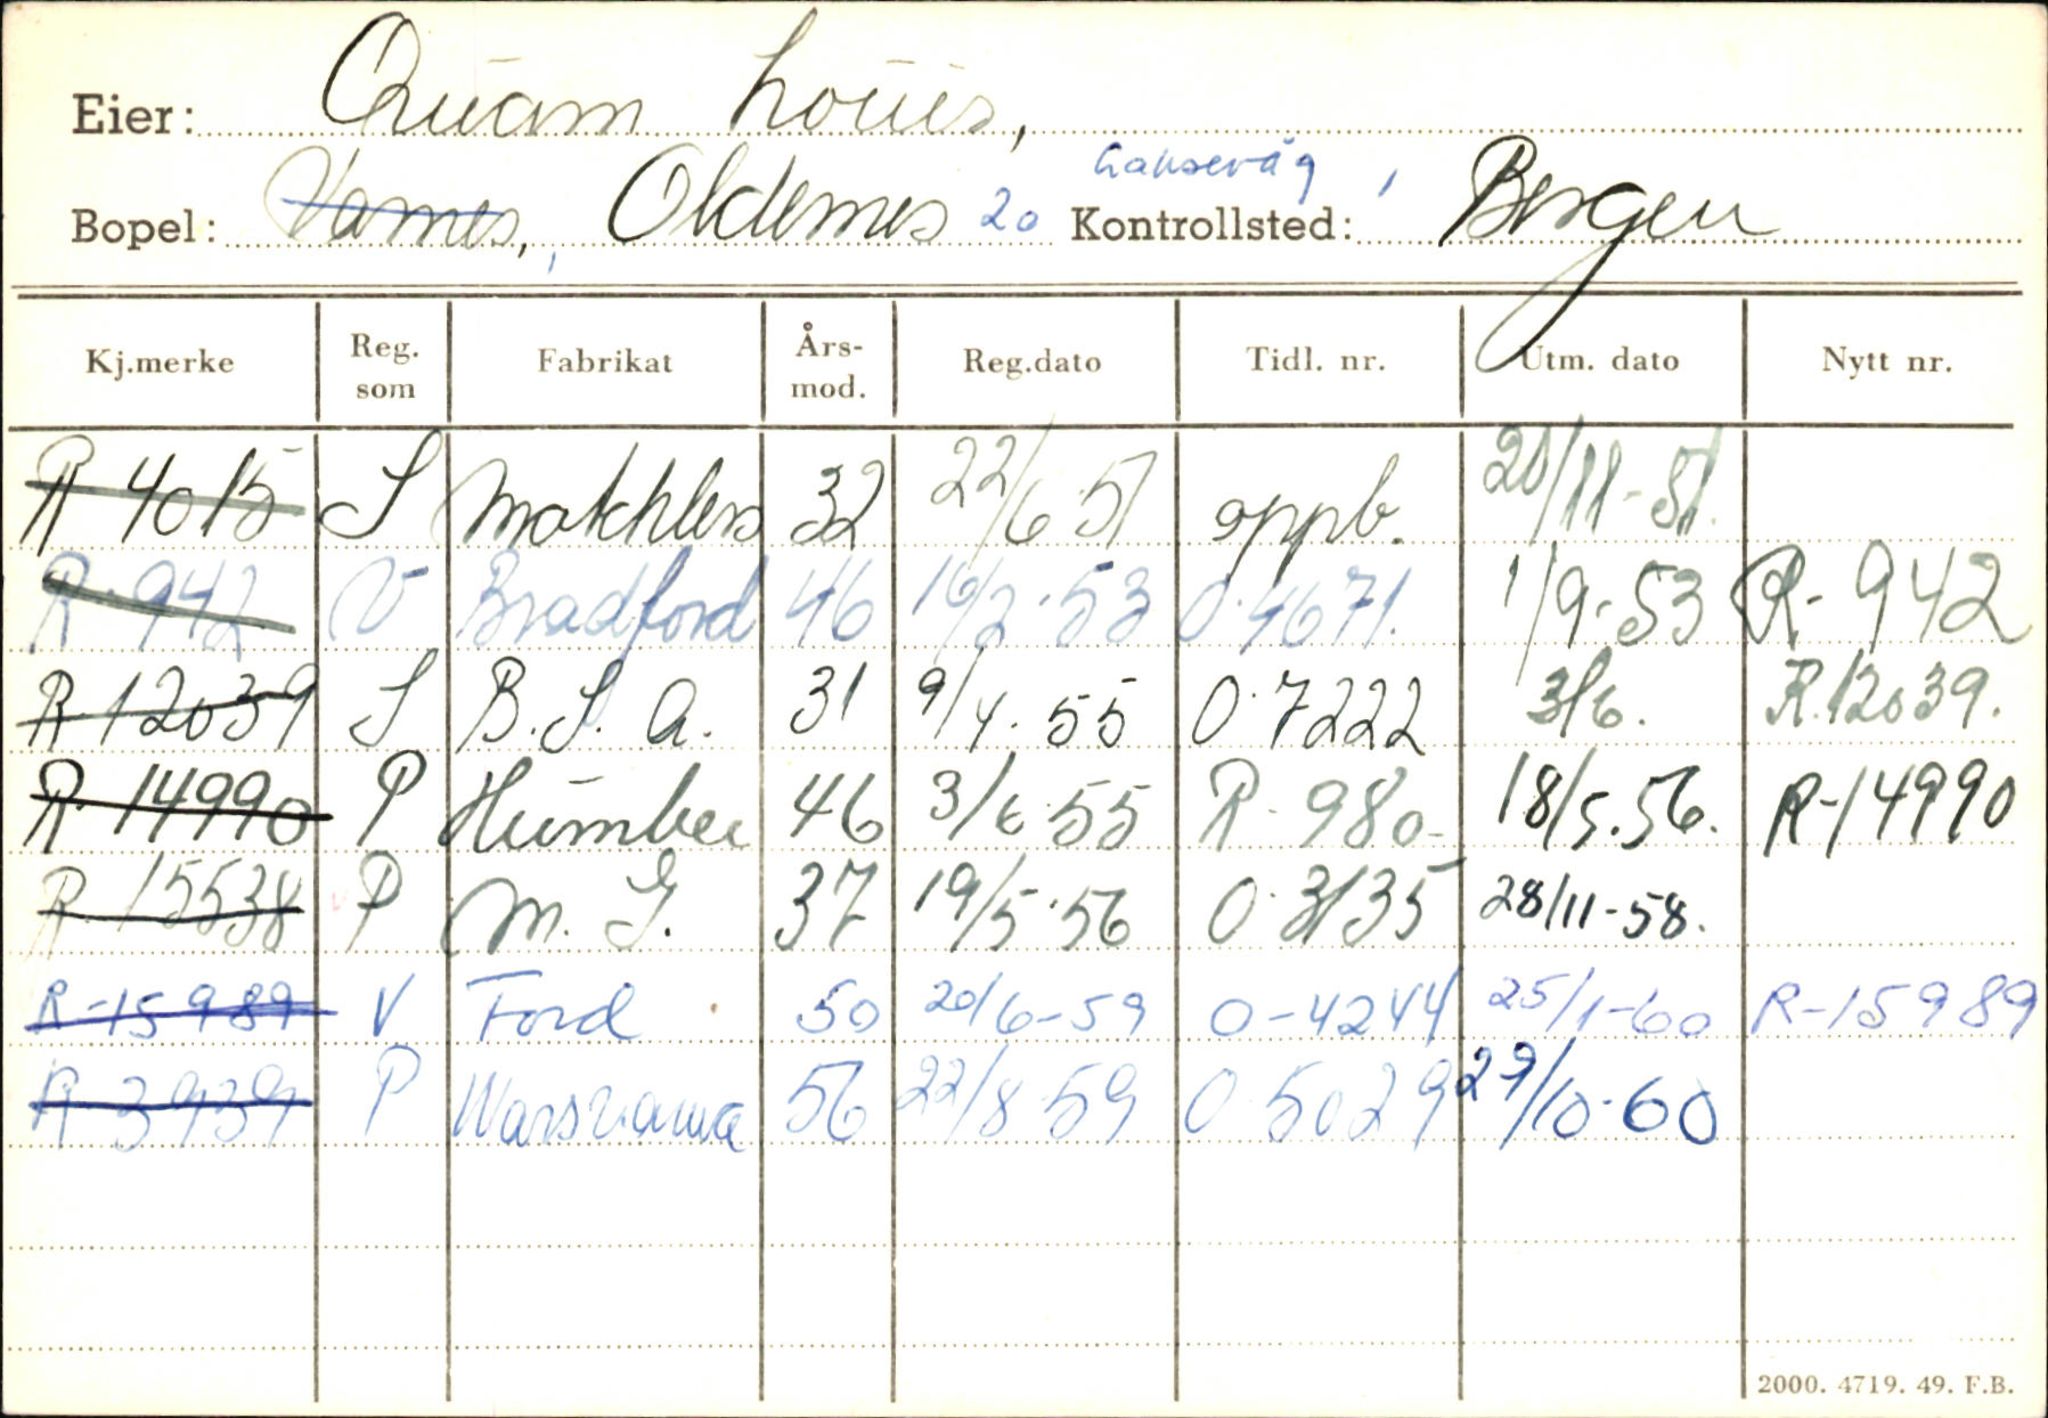 Eier: Quam Louis,
Laksevåg,
Bopel: Vames, Oldernes 20 Kontrollsted: Bergen
Kj.merke Reg. som Fabrikat Års-mod. Reg.dato Tidl. nr. Utm. dato Nytt nr.
R 4015 S Matchless 32 22/6.51 oppb. 20/11-51.
R-942 V Bradford 46 16/2.53 O.4671. 1/9-53 R-942
R 12039 S B.S.A. 31 9/4.55 O.7222 3/6. R.12039.
R.14990 P Humber 46 3/6.55 R-980- 18/5.56. R-14990
R.15538 P M.G. 37 19/5.56 O.3135 28/11-58.
R-15989 V Ford 50 20/6-59 O-4244 25/1-60 R-15989
R 3939 P Warszawa 56 22/8.59 O.5029 29/10.60
2000. 4719. 49. F.B.